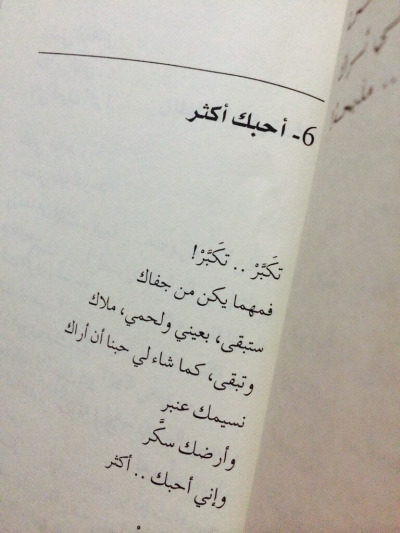 6- أحبك أكثر
تَكَبَّرْ .. تَكَبَّرْ!
فمهما يكن من جفاك
ستبقى، بعيني ولحمي، ملاك
وتبقى، كما شاء لي حبنا أن أراك
نسيمك عنبر
وأرضك سكَّر
وإني أحبك .. أكثر